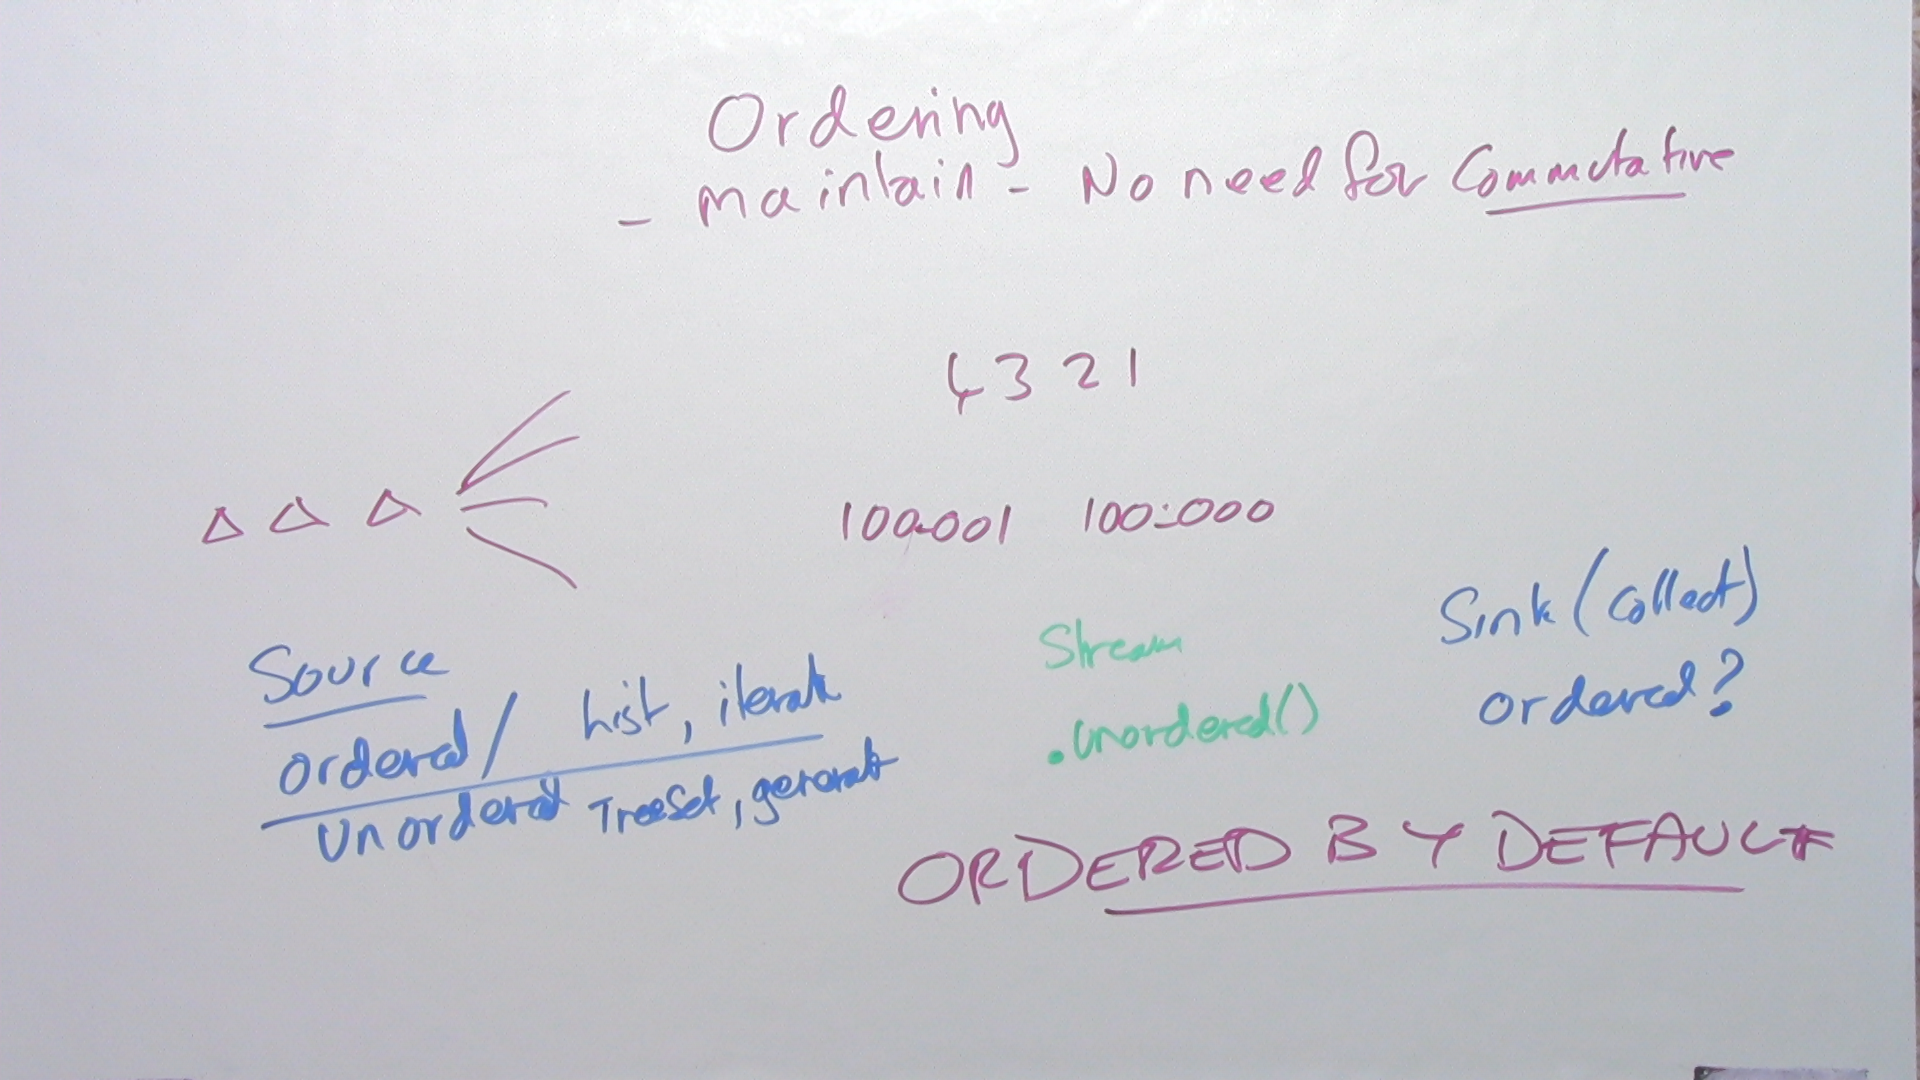 Ordering
- maintain - No need for Commutative
4 3 2 1
100001 100:000
Source
ordered/ List, iterate
Unordered TreeSet, generate
Stream
.unordered()
Sink (collect)
ordered?
ORDERED BY DEFAULT